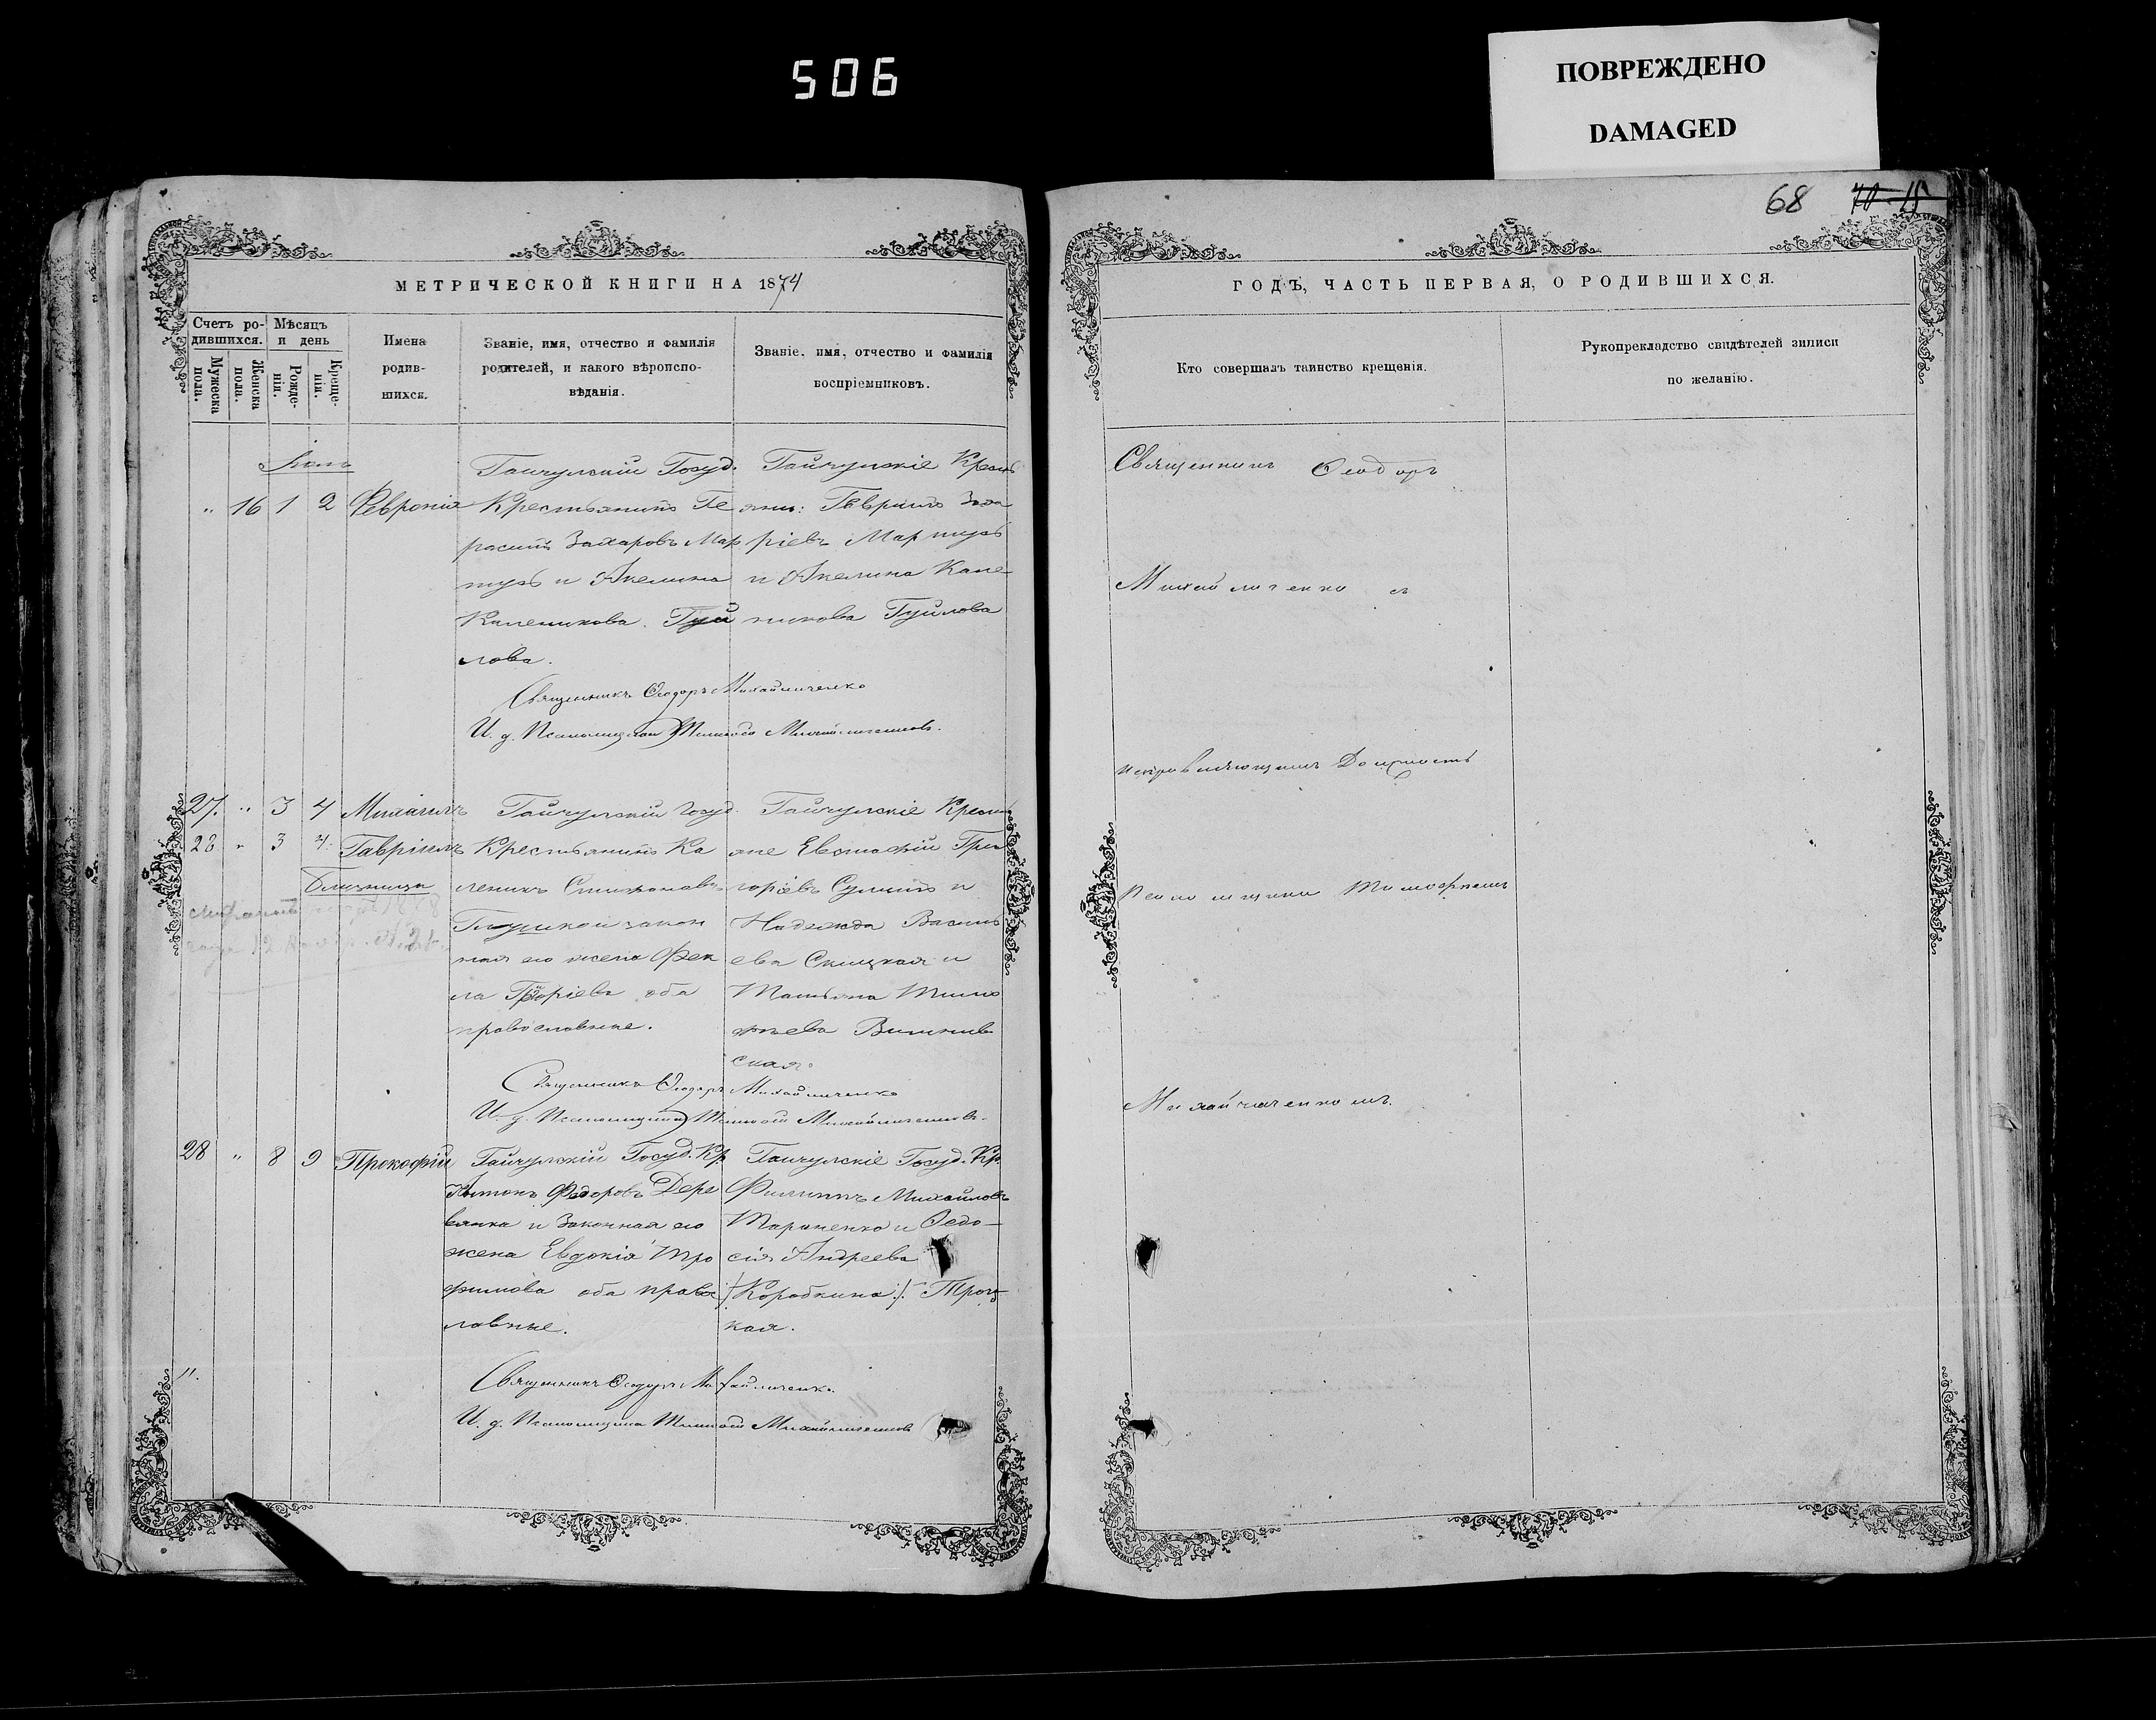 506
ПОВРЕЖДЕНО
DAMAGED
68
МЕТРИЧЕСКОЙ КНИГИ НА 1874
Счетъ ро-
дившихся.
Мужеска
пола.
Женска
пола.
Мѣсяцъ
и день
Рожде-
нія.
Креще-
нія.
Имена
родив-
шихся.
Званіе, имя, отчество и фамилія
родителей, и какого вѣроиспо-
вѣданія.
Званіе, имя, отчество и фамилія
воспріемниковъ.
" 16 1 2 Февронія
Гайчулскій Госуд.
Крестьянинъ Ге
расимъ Захаровъ Мар
тузъ и Акелина
Каленикова. Гуй
лова.
Гайчулскіе Кресть
яни: Гавріилъ Заха
ріевъ Мартузъ
и Акелина Кале-
никова Гуйлова
Священникъ Ѳеодоръ Михайличенко
И. д. Псаломщика Тимофей Михайличенковъ.
27. " 3 4 Михаилъ
28 " 3 4 Гавріилъ
Близницы
Гайчулскій Госуд.
Крестьянинъ Ка
леникъ
закон
ная его жена Фек
ла оба
православные.
Гайчулскіе Кресть
яне Евстафій Гри
горіевъ и
Надежда Василь
ева и
Татьяна Тимо
феева
ская.
Священникъ Ѳеодоръ Михайличенко
И. д. Псаломщика Тимофей Михайличенковъ.
28 " 8 9 Прокофій
Гайчулскій Госуд. Кр.
Антонъ Федоровъ Дере
вянка и Законная его
жена Евдокія Тро
фимова оба правос
лавные.
Гайчулскіе Госуд. Кр.
Филиппъ Михайловъ
Тараненко и Ѳедо-
сія Андреева
/Коробкина/. Троц
кая.
11.
Священникъ Ѳеодоръ Михайличенко.
И. д. Псаломщика Тимофей Михайличенковъ
ГОДЪ, ЧАСТЬ ПЕРВАЯ, О РОДИВШИХСЯ.
Кто совершалъ таинство крещенія.
Рукоприкладство свидѣтелей записи
по желанію.
Священникъ Ѳеодоръ
Михайличенко съ
исправляющимъ Должность
Псаломщика Тимофеемъ
Михайличенкомъ.